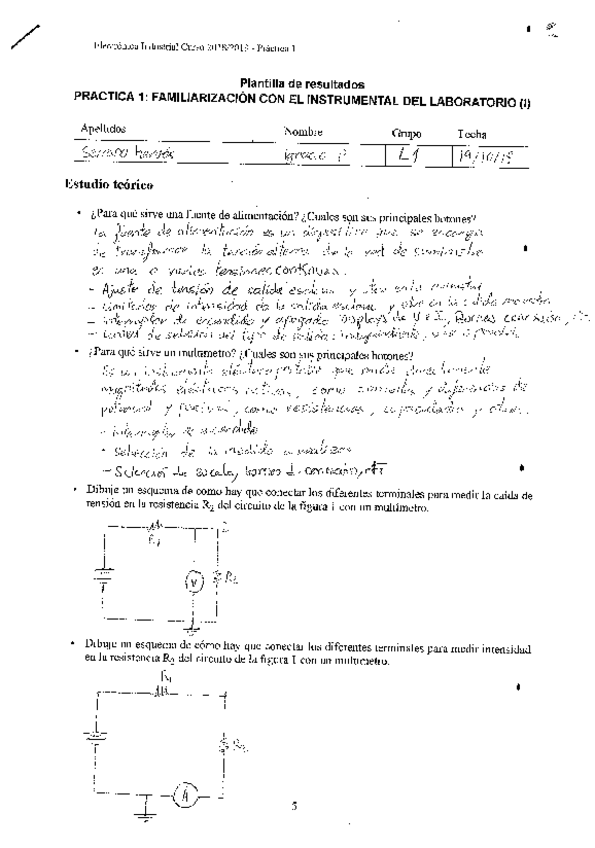 Electrónica Industrial Curso 2018/2019 - Práctica 1
Plantilla de resultados
PRACTICA 1: FAMILIARIZACIÓN CON EL INSTRUMENTAL DEL LABORATORIO (I)
Apellidos Nombre Grupo Fecha
Serrano Ignacio L1 19/10/18
Estudio teórico
• ¿Para qué sirve una fuente de alimentación? ¿Cuales son sus principales botones?
La fuente de alimentación es un dispositivo que se encarga
de transformar la tensión alterna de la red de suministro
en una o varias tensiones continuas.
- Ajuste de tensión de salida esclava y otro en la
- Limitadores de intensidad de la salida esclava y otro en la salida maestra
- interruptor de encendido y apagado, Displays de V e I, Bornes conexión,
- Control de selección del tipo de salida: independiente, serie o paralelo
• ¿Para qué sirve un multímetro? ¿Cuales son sus principales botones?
Es un instrumento eléctrico portátil que mide directamente
magnitudes eléctricas activas, como corrientes y diferencias de
potencial y pasivas, como resistencias, capacidades y otras.
- Interruptor de encendido
- Selección de la medida a realizar
- Selección de escala, bornes d. conexión,
• Dibuje un esquema de como hay que conectar los diferentes terminales para medir la caída de
tensión en la resistencia R2 del circuito de la figura 1 con un multímetro.
R1
V R2
• Dibuje un esquema de cómo hay que conectar los diferentes terminales para medir intensidad
en la resistencia R2 del circuito de la figura 1 con un multímetro.
R1
R2
A
5